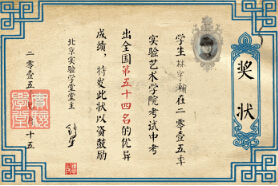 奖状
学生林宇瀚在二零壹五年
实验艺术学院考试中考
出全国第五十四名的优异
成绩，特发此状以资鼓励
北京实验学堂堂主
二零壹五
十五